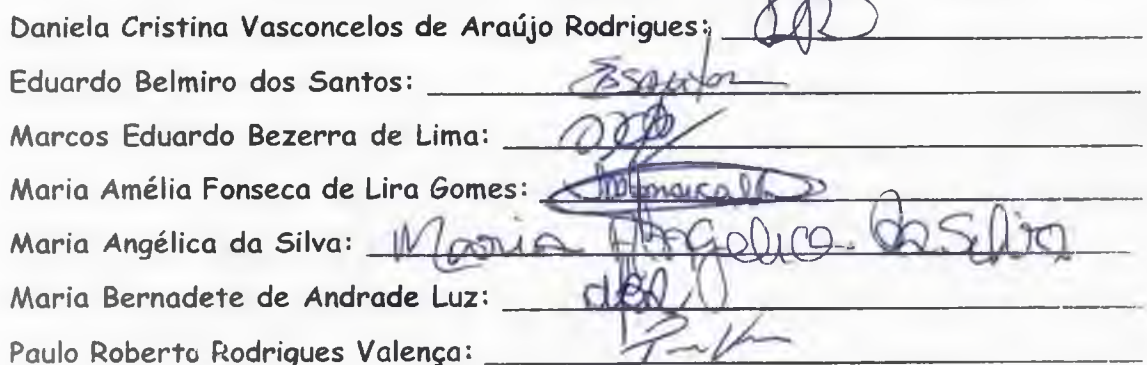 Daniela Cristina Vasconcelos de Araújo Rodrigues:
Eduardo Belmiro dos Santos:
Marcos Eduardo Bezerra de Lima:
Maria Amélia Fonseca de Lira Gomes:
Maria Angélica da Silva: Maria Angelica da Silva
Maria Bernadete de Andrade Luz:
Paulo Roberto Rodrigues Valença: